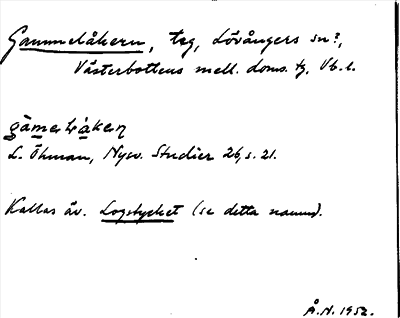 Gammelåkern, teg, Lövångers sn?,
Västerbottens mell. doms. tg, Vb. l.
L. Öhman, Nysv. Studier 26, s. 21.
Kallas äv. Logstycket (se detta namn).
Å.N. 1952.